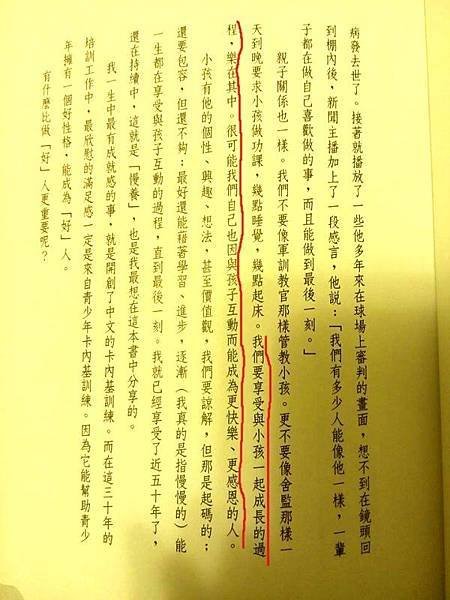 病發去世了。接著就播放了一些他多年來在球場上審判的畫面，想不到在鏡頭回
到棚內後，新聞主播加上了一段感言，他說：「我們有多少人能像他一樣，一輩
子都在做自己喜歡做的事，而且能做到最後一刻。」
親子關係也一樣。我們不要像軍訓教官那樣管教小孩。更不要像舍監那樣一
天到晚要求小孩做功課，幾點睡覺，幾點起床。我們要享受與小孩一起成長的過
程，樂在其中。很可能我們自己也因與孩子互動而能成為更快樂、更感恩的人。
小孩有他的個性、興趣、想法，甚至價值觀，我們要諒解，但那是起碼的；
還要包容，但還不夠；最好還能藉著學習、進步，逐漸（我真的是指慢慢的）能
一生都在享受與孩子互動的過程，直到最後一刻。我就已經享受了近五十年了，
還在持續中，這就是「慢養」，也是我最想在這本書中分享的。
我一生中最有成就感的事，就是開創了中文的卡內基訓練。而在這三十年的
培訓工作中，最欣慰的滿足感一定是來自青少年卡內基訓練。因為它能幫助青少
年擁有一個好性格，能成為「好」人。
有什麼比做「好」人更重要呢？